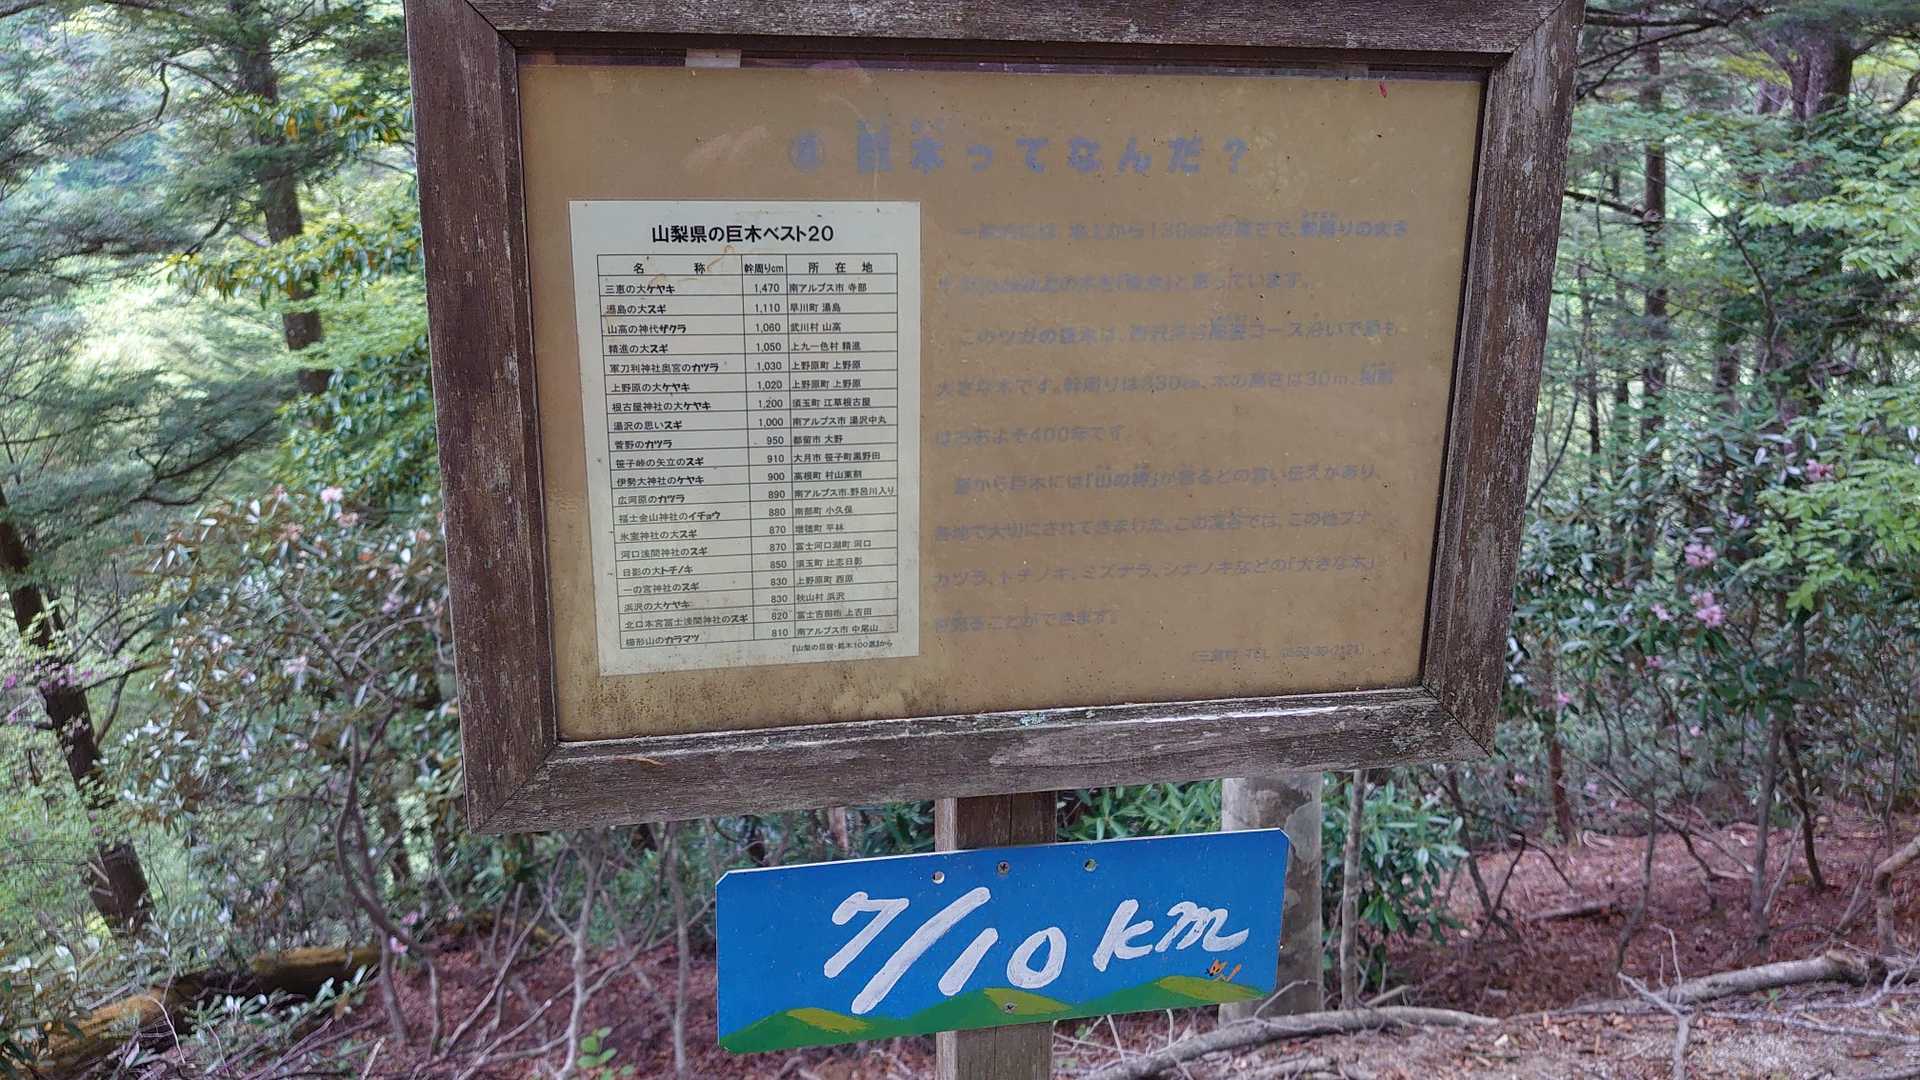 巨木ってなんだ？
山梨県の巨木ベスト20
名 称 幹周りcm 所 在 地
三恵の大ケヤキ 1,470 南アルプス市 寺部
湯島の大スギ 1,110 早川町 湯島
山高の神代ザクラ 1,060 武川村 山高
精進の大スギ 1,050 上九一色村 精進
軍刀利神社奥宮のカツラ 1,030 上野原町 上野原
上野原の大ケヤキ 1,020 上野原町 上野原
根古屋神社の大ケヤキ 1,200 須玉町 江草根古屋
湯沢の思いスギ 1,000 南アルプス市 湯沢中丸
菅野のカツラ 950 都留市 大野
笹子峠の矢立のスギ 910 大月市 笹子町黒野田
伊勢大神社のケヤキ 900 高根町 村山東割
広河原のカツラ 890 南アルプス市 野呂川入り
福士金山神社のイチョウ 880 南部町 小久保
氷室神社の大スギ 870 増穂町 平林
河口浅間神社のスギ 870 富士河口湖町 河口
日影の大トチノキ 850 須玉町 比志日影
一の宮神社のスギ 830 上野原町 西原
浜沢の大ケヤキ 830 秋山村 浜沢
北口本宮冨士浅間神社のスギ 820 富士吉田市 上吉田
櫛形山のカラマツ 810 南アルプス市 中尾山
『山梨の巨樹・銘木100選』から
一般的には、地上から130cmの高さで、幹周りの太さ
が300cm以上の木を「巨木」と言っています。
このツガの巨木は、西沢渓谷コース沿いで最も
大きな木です。幹周りは330cm、木の高さは30m、樹齢
はおおよそ400年です。
昔から巨木には「山の神」が宿るとの言い伝えがあり、
各地で大切にされてきました。この渓谷では、この他ブナ、
カツラ、トチノキ、ミズナラ、シナノキなどの「大きな木」
を見ることができます。
7/10 km